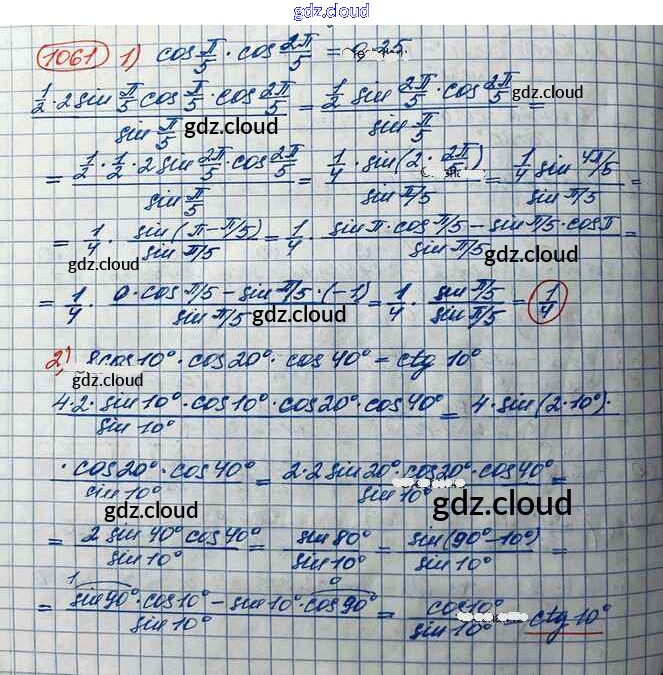 gdz.cloud
1061 1) cos π/5 · cos 2π/5 = 0,25.
(1/2 · 2 sin π/5 cos π/5 · cos 2π/5) / (sin π/5) = (1/2 sin 2π/5 · cos 2π/5) / (sin π/5) =
gdz.cloud
gdz.cloud
= (1/2 · 1/2 · 2 sin 2π/5 · cos 2π/5) / (sin π/5) = (1/4 · sin(2 · 2π/5)) / (sin π/5) = (1/4 sin 4π/5) / (sin π/5) =
= 1/4 · sin(π - π/5) / sin π/5 = 1/4 · (sin π · cos π/5 - sin π/5 · cos π) / (sin π/5) =
gdz.cloud
gdz.cloud
= 1/4 · (0 · cos π/5 - sin π/5 · (-1)) / (sin π/5) = 1/4 · sin π/5 / sin π/5 = 1/4
gdz.cloud
2) 8 cos 10° · cos 20° · cos 40° = ctg 10°
gdz.cloud
(4 · 2 · sin 10° · cos 10° · cos 20° · cos 40°) / (sin 10°) = 4 · sin(2 · 10°) ·
· cos 20° · cos 40° / sin 10° = (2 · 2 sin 20° · cos 20° · cos 40°) / (sin 10°) =
gdz.cloud
gdz.cloud
= (2 sin 40° cos 40°) / (sin 10°) = sin 80° / sin 10° = sin(90° - 10°) / sin 10° =
1 0
= (sin 90° · cos 10° - sin 10° · cos 90°) / (sin 10°) = cos 10° / sin 10° = ctg 10°